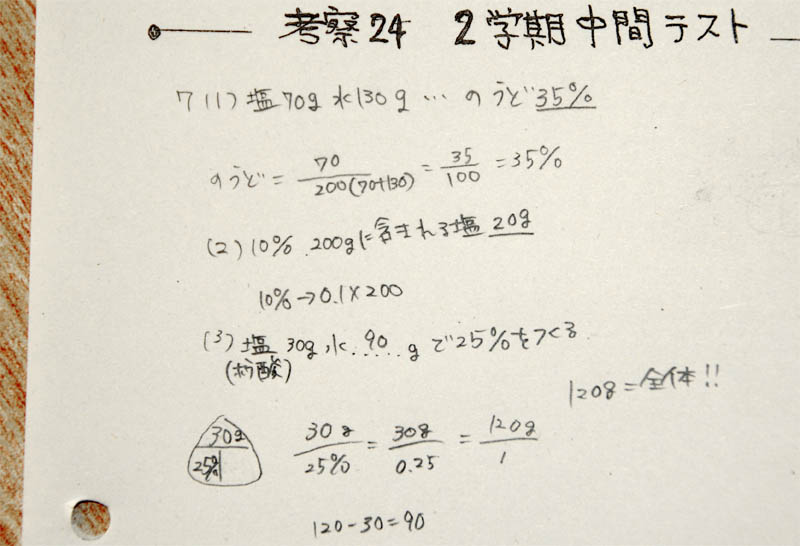 考察24 2学期中間テスト
7(1) 塩70g 水130g … のうど35%
のうど = 70/200(70+130) = 35/100 = 35%
(2) 10% 200gに含まれる塩 20g
10%→0.1×200
(3) 塩 30g, 水 ..90.. g で25%をつくる
(ホウ酸)
120g=全体!!
30g
30g/25% = 30g/0.25 = 120g/1
25%
120-30=90